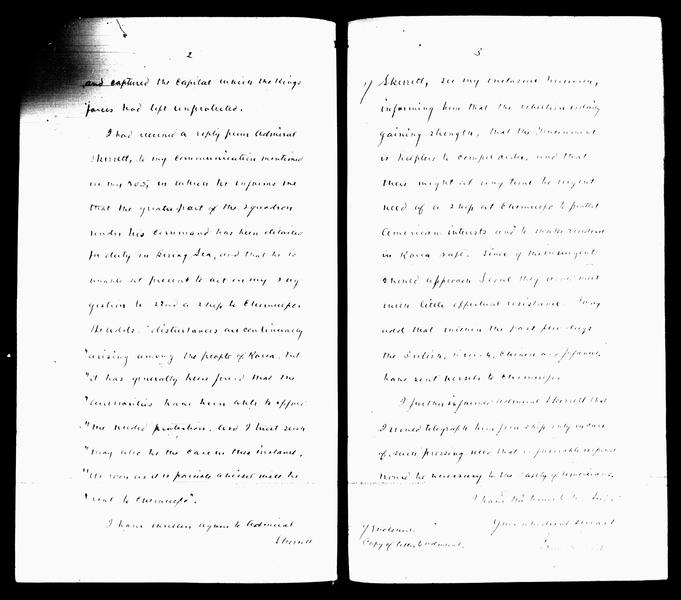 2
and captured the Capital which the Kings
forces had left unprotected.
I had received a reply from Admiral
Skerrett, to my communication mentioned
in my 305, in which he informs me
that the greater part of the squadron
under his command has been detailed
for duty in Bering Sea, and that he is
unable at present to act on my sug
gestion to send a ship to Chemulpo.
He adds: "disturbances are continually
"arising among the people of Korea, but
"it has generally been found that the
"authorities have been able to afford
"the needed protection, and I trust such
"may also be the case in this instance.
"As soon as it is possible a vessel will be
"sent to Chemulpo".
I have written again to Admiral
Skerrett
3
Skerrett, see my enclosure herewith,
informing him that the rebellion is daily
gaining strength, that the Government
is helpless to compel order, and that
there might at any time be urgent
need of a ship at Chemulpo to protect
American interests and to make residence
in Korea safe. Since if the insurgents
should approach Seoul they would meet
with little effectual resistance. I may
add that within the past few days
the British, French, Chinese and Japanese,
have sent vessels to Chemulpo.
I further informed Admiral Skerrett that
I would telegraph him for a ship only in case
of such pressing need that a favorable response
would be necessary to the safety of Americans.
I have the honor to be, Sir,
Your obedient servant
Enclosure.
Copy of letter to Admiral.